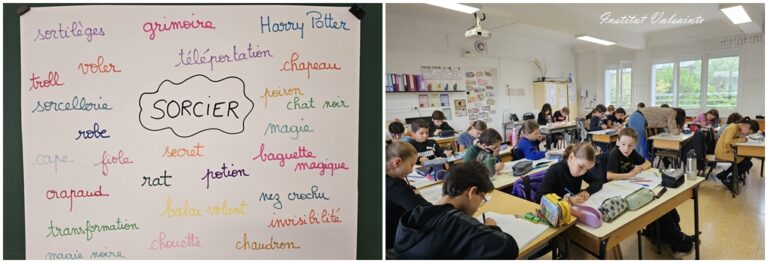 sortilèges grimoire Harry Potter
voler téléportation chapeau
troll
sorcellerie SORCIER poison
chat noir
robe magie
cape fiole secret baguette
magique
crapaud rat potion
nez crochu
balai volant invisibilité
transformation
chouette chaudron
magie noire
Institut Valsainte